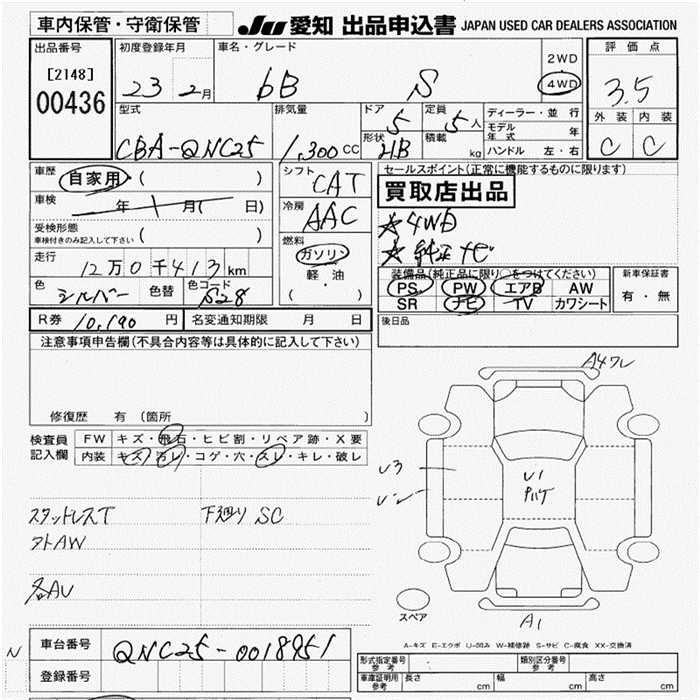 車内保管・守衛保管 JU 愛知 出品申込書 JAPAN USED CAR DEALERS ASSOCIATION
出品番号 初度登録年月 車名・グレード 評価点
[2148] 23 2月 bB S 2WD 4WD 3.5
00436
型式 排気量 ドア 定員 ディーラー・並行 外装 内装
5 5人 モデル年式 年
CBA-QNC25 1,300cc 形状 HB 積載 kg ハンドル 左・右 C C
車歴 自家用 ( ) シフト CAT セールスポイント(正常に機能するものに限ります)
買取店出品
車検 年 月( 日) 冷房 AAC
☆4WD
受検形態 ( )
車検付きのみ記入して下さい
燃料 ☆純正ナビ
走行 12万0千413km ガソリン
軽油
( ・ )
装備品(純正品に限り○をつけてください) 新車保証書
色 シルバー 色替 色コード S28 PS PW エアB AW 有・無
SR ナビ TV カワシート
R券 10,190円 名変通知期限 月 日 後日品
注意事項申告欄(不具合内容等は具体的に記入して下さい)
修復歴 有(箇所 )
A4ワレ
検査員 FW キズ・飛石・ヒビ割・リペア跡・X要
記入欄 内装 キズ・汚レ・コゲ・穴・スレ・キレ・破レ
U3 U1
スタッドレスT 下廻り SC
AW
AU
スペア A1
A-キズ E-エクボ U-凹み W-補修跡 S-サビ C-腐食 XX-交換済
N 車台番号 QNC25-0018951
登録番号
形式指定番号 参考 類別区分番号 参考
車庫証明用 参考 長さ cm 幅 cm 高さ cm